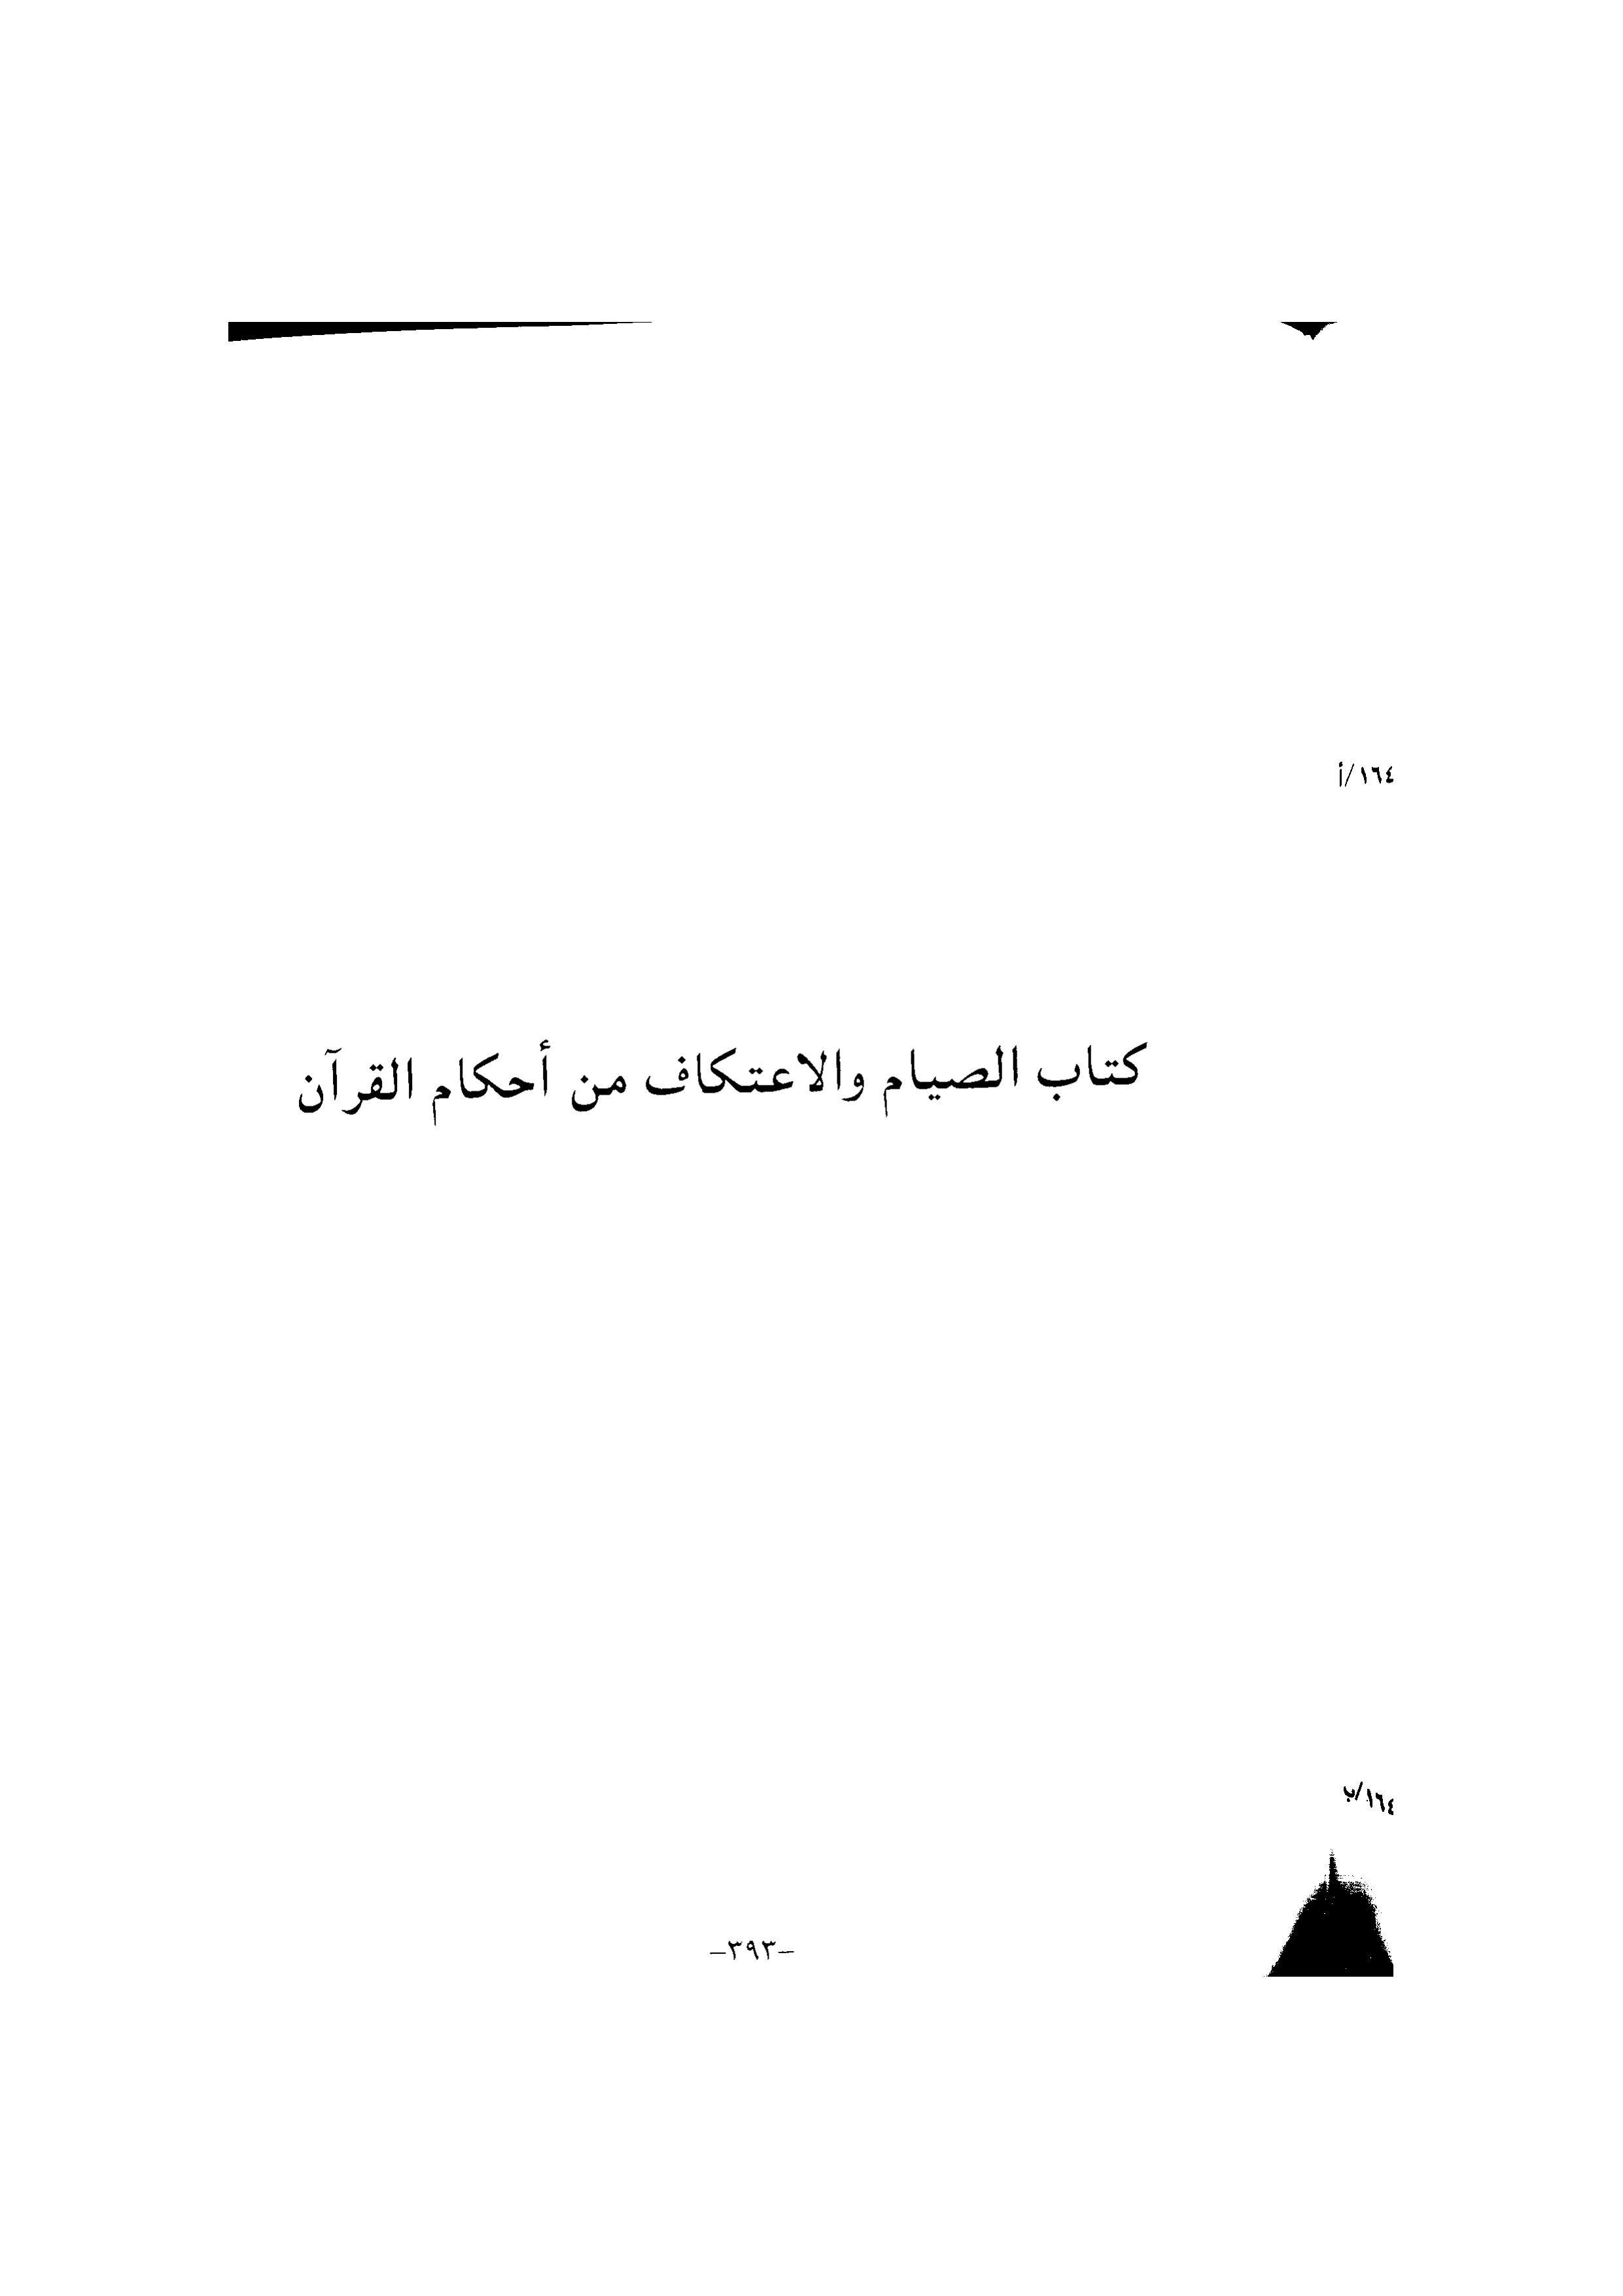 ١٦٤/أ
كتاب الصيام والاعتكاف من أحكام القرآن
١٦٤/ب
-٣٩٣-